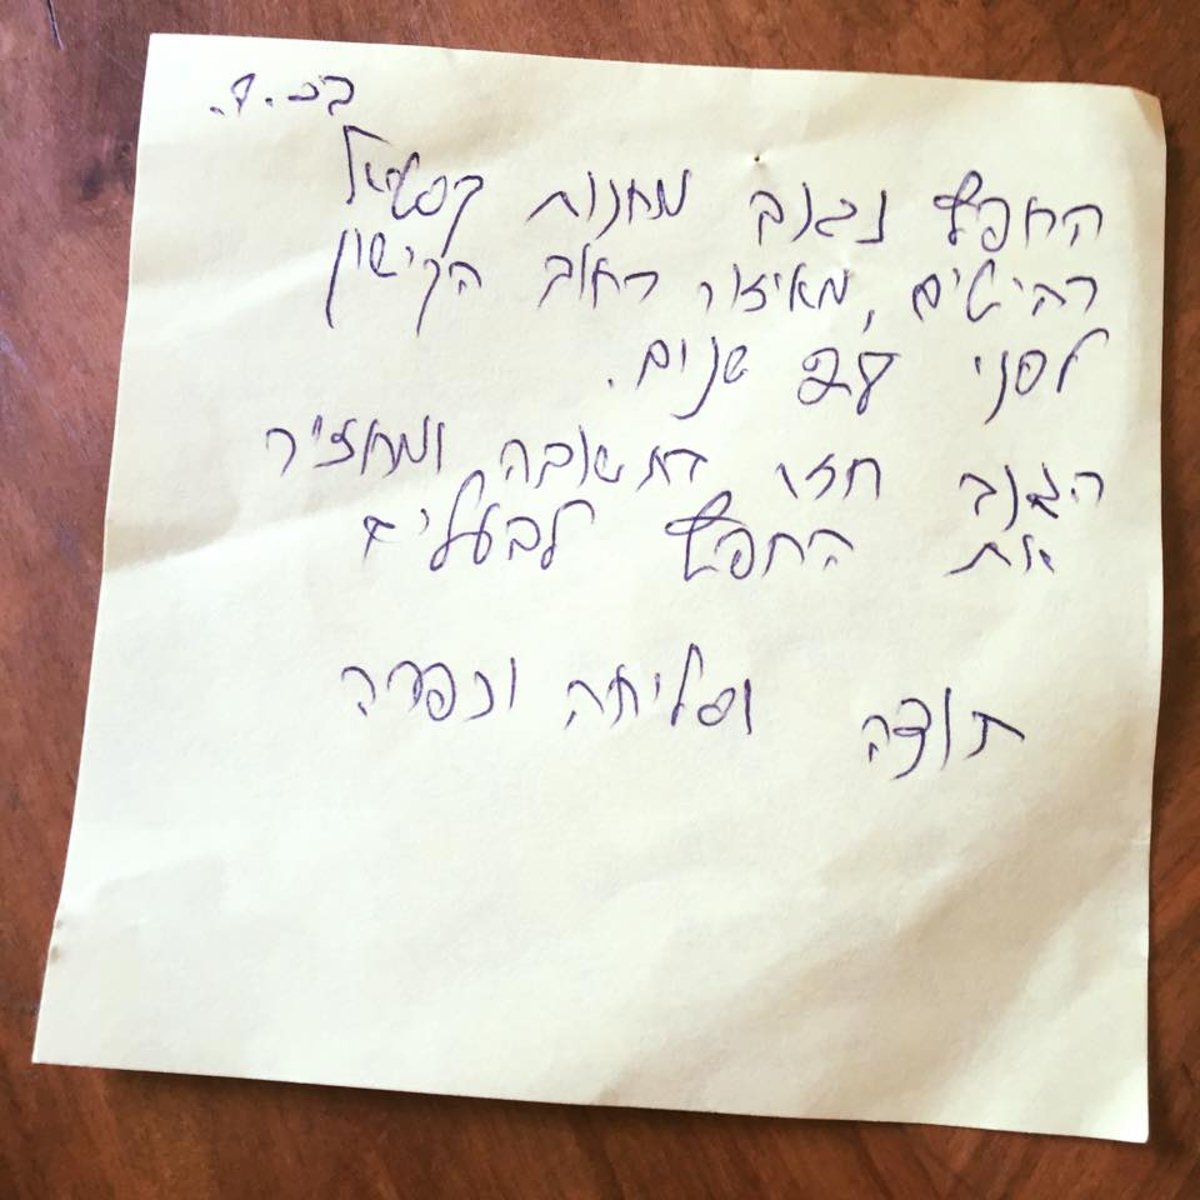 בס.ד.
החפץ נגנב מחנות קסטיאל
רהיטים, מאיזור רחוב הקישון
לפני שנים.
הגנב חזר בתשובה ומחזיר
את החפץ לבעליו
תודה וסליחה וכפרה